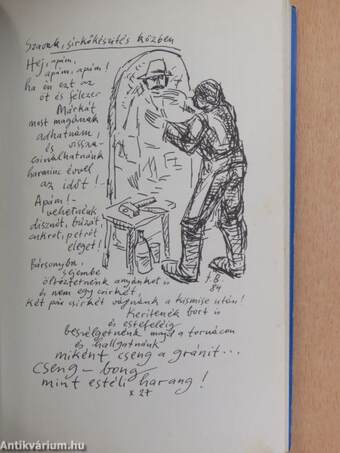 Szavak, sírkőkészítés közben
Hej, apám,
apám, apám!
ha én ezt az
öt és félezer
Márkát
most magának
adhatnám,
és vissza-
csinálhatnánk
harminc évvel
az időt!..
Apám!-
vehetnénk
disznót, búzát,
cukrot, petrót
eleget!
Bársonyba,
selyembe
öltöztetnénk anyánkat is
és nem egy csirkét,
két pár csirkét vágnánk a kismise után!
Kerítenénk bort is
és estefeléig
beszélgetnénk majd a tornácon
és hallgatnánk
miként cseng a gránit...
cseng-bong
mint estéli harang!
x 27
J. B.
84
Antikvárium.hu